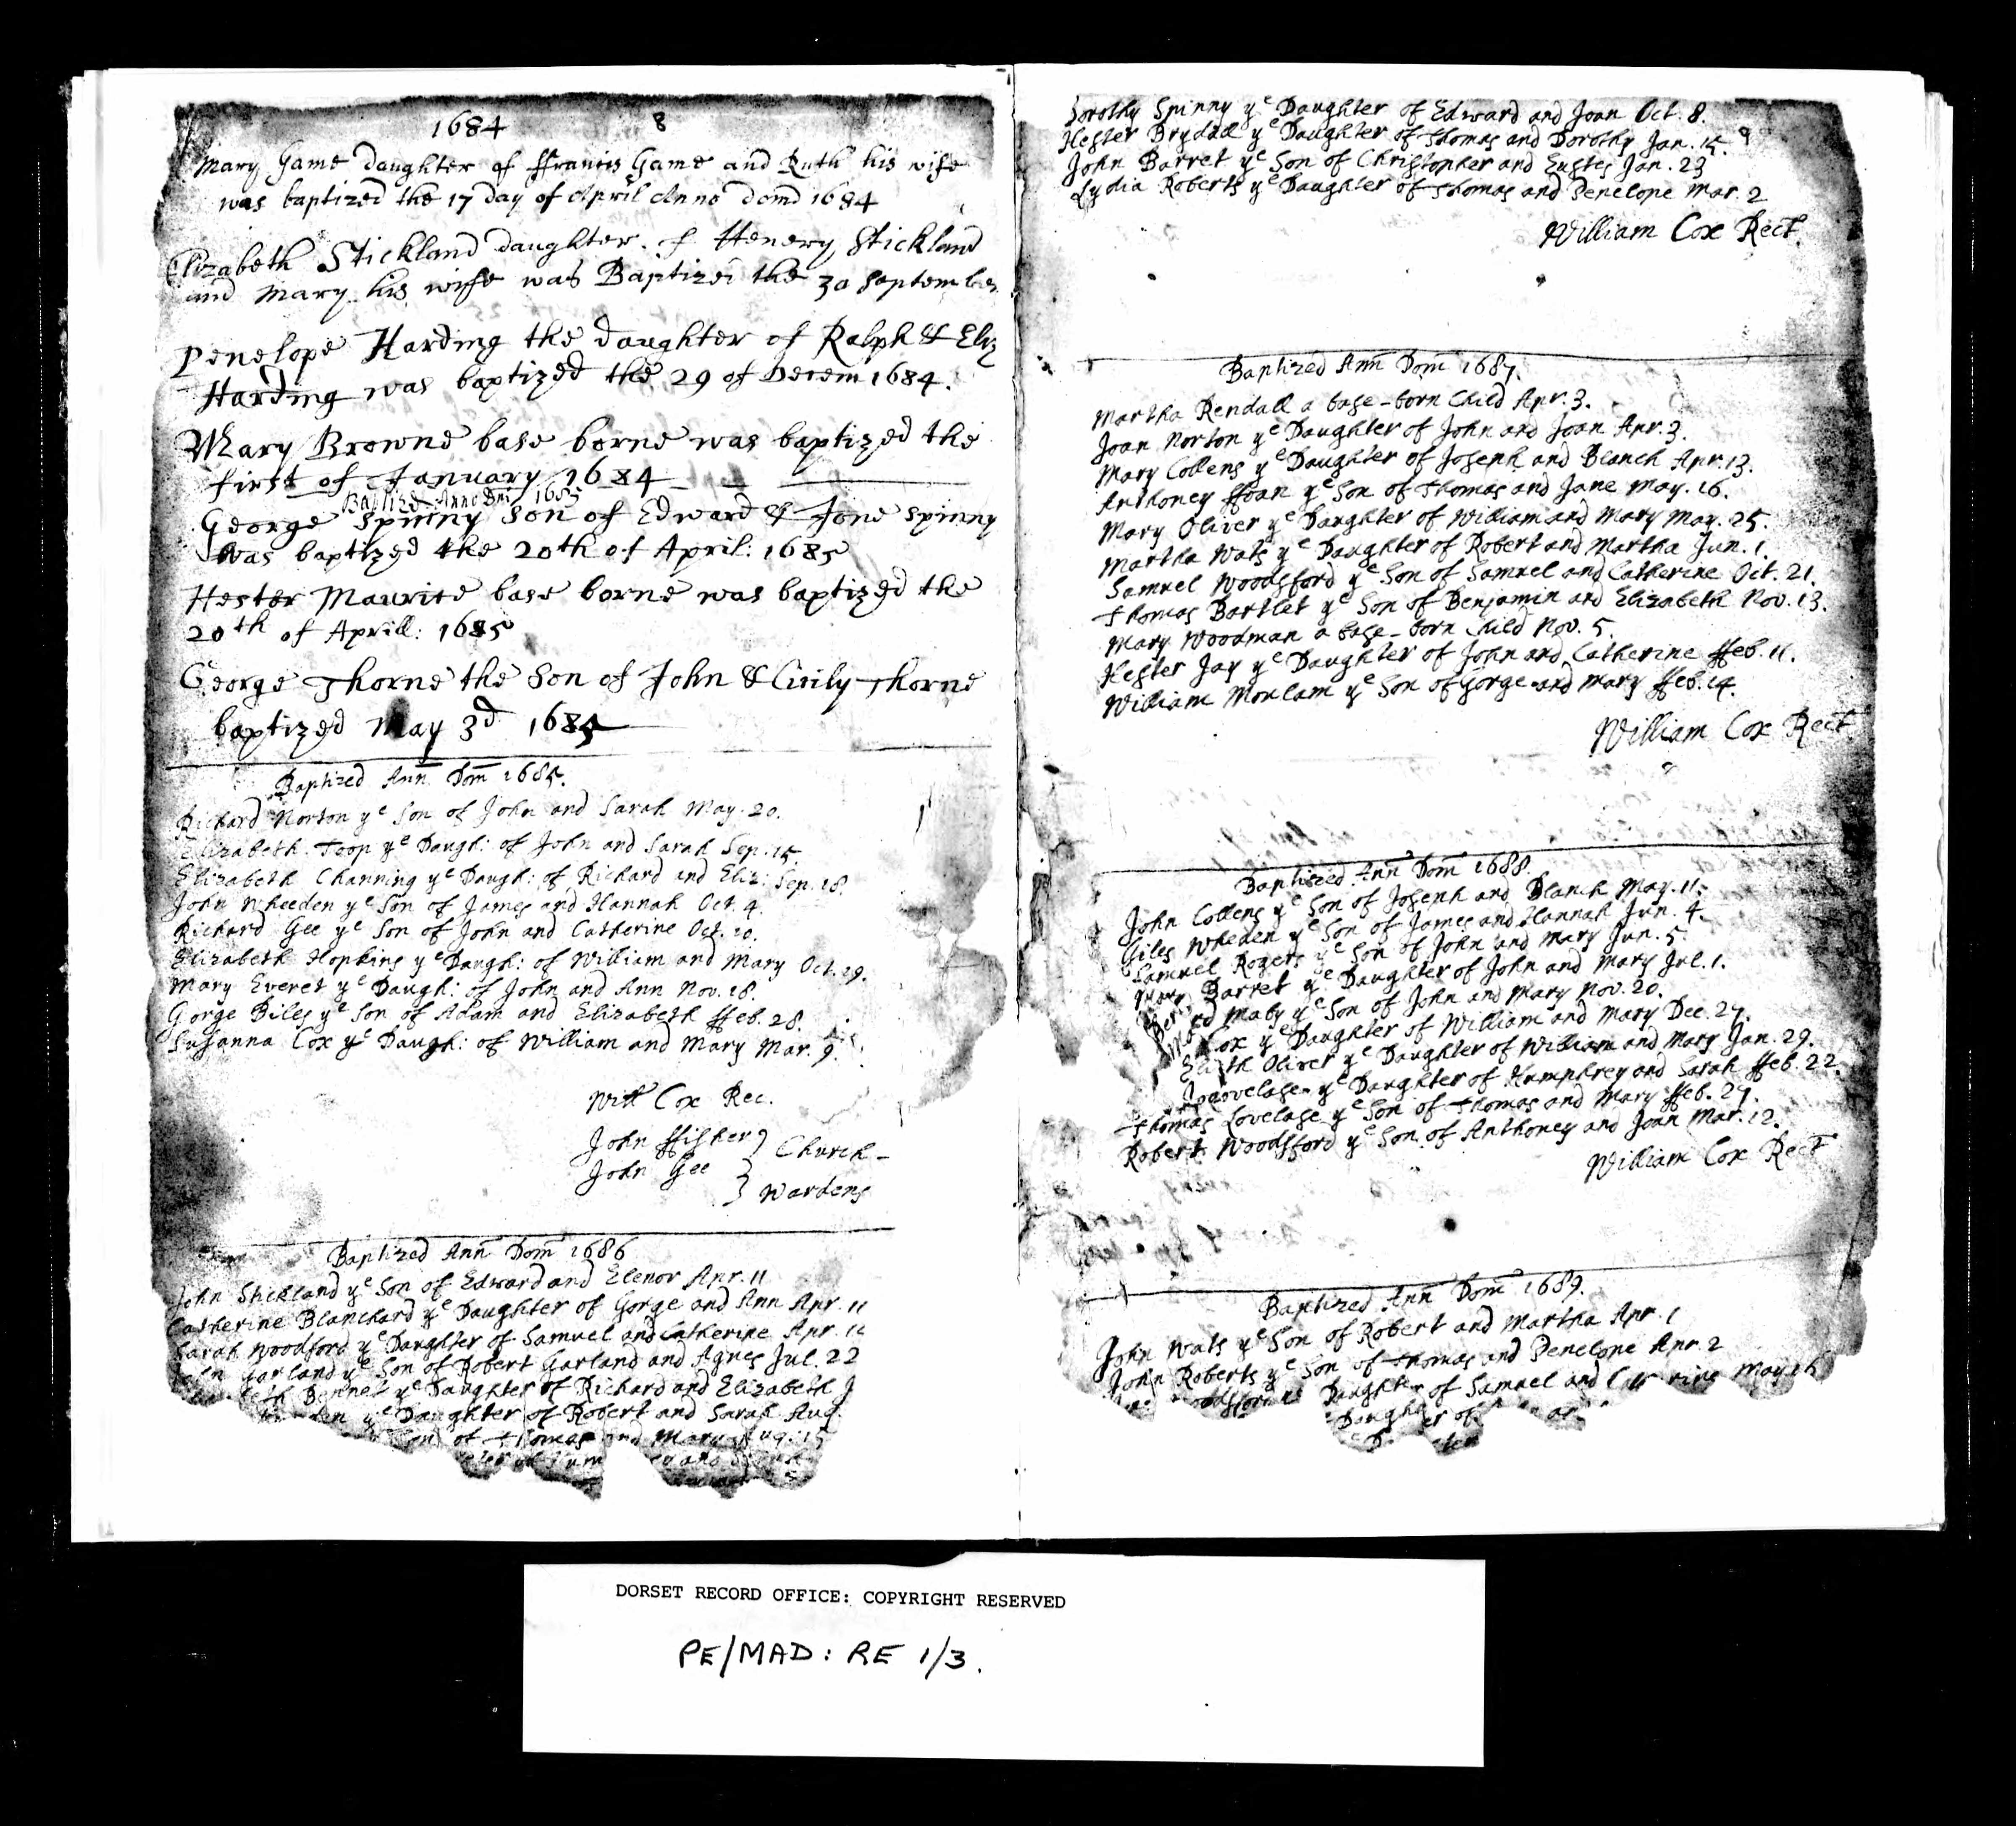 1684 8
Mary Game daughter of ffrancis Game and Ruth his wife
was baptized the 17 day of April Anno domd 1684
Elizabeth Stickland daughter of Henery Stickland
and Mary his wife was Baptized the 30 September
Penelope Harding the daughter of Ralph & Eliz
Harding was baptized the 29 of Decem 1684.
Mary Browne base borne was baptized the
first of January 1684
Baptized Anno Dni 1685
George Spinny son of Edward & Jone Spinny
was baptized the 20th of April: 1685
Hester Maurice base borne was baptized the
20th of Aprill: 1685
George Thorne the Son of John & Cicily Thorne
baptized May 3d 1685
Baptized Ann Dom 1685.
Richard Norton ye Son of John and Sarah May. 20.
Elizabeth Toop ye Daugh: of John and Sarah Sep. 15.
Elizabeth Channing ye Daugh: of Richard and Eliz: Sep. 18.
John Wheeden ye Son of James and Hannah Oct. 4.
Richard Gee ye Son of John and Catherine Oct. 20.
Elizabeth Hopkins ye Daugh: of William and Mary Oct. 29.
Mary Everet ye Daugh: of John and Ann Nov. 18.
Gorge Biles ye Son of Adam and Elizabeth ffeb. 28.
Susanna Cox ye Daugh: of William and Mary Mar. 9.
Will Cox Rec.
John ffisher } Church-
John Gee } Wardens
Baptized Ann Dom 1686
John Stickland ye Son of Edward and Elenor Apr. 11
Catherine Blanchard ye Daughter of Gorge and Ann Apr. 11
Sarah Woodford ye Daughter of Samuel and Catherine Apr.
John Garland ye Son of Robert Garland and Agnes Jul. 22
Bennet ye Daughter of Richard and Elizabeth J
ye Daughter of Robert and Sarah Aug.
Son of Thomas and Mary Aug. 15
Dorothy Spinny ye Daughter of Edward and Joan Oct. 8.
9
Hester Brydall ye Daughter of Thomas and Dorothy Jan. 15.
John Barret ye Son of Christopher and Eustes Jan. 23
Lydia Roberts ye Daughter of Thomas and Penelope Mar. 2
William Cox Rect.
Baptized Ann Dom 1687.
Martha Rendall a base-born Child Apr. 3.
Joan Norton ye Daughter of John and Joan Apr. 3.
Mary Collens ye Daughter of Joseph and Blanch Apr. 13.
Anthoney ffoan ye Son of Thomas and Jane May. 16.
Mary Oliver ye Daughter of William and Mary May. 25.
Martha Wats ye Daughter of Robert and Martha Jun. 1.
Samuel Woodsford ye Son of Samuel and Catherine Oct. 21.
Thomas Bartlet ye Son of Benjamin and Elizabeth Nov. 13.
Mary Woodman a base-born Child Nov. 5.
Hester Jay ye Daughter of John and Catherine ffeb. 11.
William Monlam ye Son of Gorge and Mary ffeb. 14.
William Cox Rect
Baptized Ann Dom 1688.
John Collens ye Son of Joseph and Blanch May. 11.
Giles Wheden ye Son of James and Hannah Jun. 4.
Samuel Rogers ye Son of John and Mary Jun. 5.
Mary Barret ye Daughter of John and Mary Jul. 1.
Maby ye Son of John and Mary Nov. 20.
Cox ye Daughter of William and Mary Dec. 27.
Oliver ye Daughter of William and Mary Jan. 29.
ye Daughter of Humphrey and Sarah ffeb. 22.
Thomas Lovelase ye Son of Thomas and Mary ffeb. 27.
Robert Woodsford ye Son of Anthoney and Joan Mar. 12.
William Cox Rect
Baptized Ann Dom 1689.
John Wats ye Son of Robert and Martha Apr. 1
John Roberts ye Son of Thomas and Penelope Apr. 2
Daughter of Samuel and May
Daughter of
DORSET RECORD OFFICE: COPYRIGHT RESERVED
PE/MAD: RE 1/3.